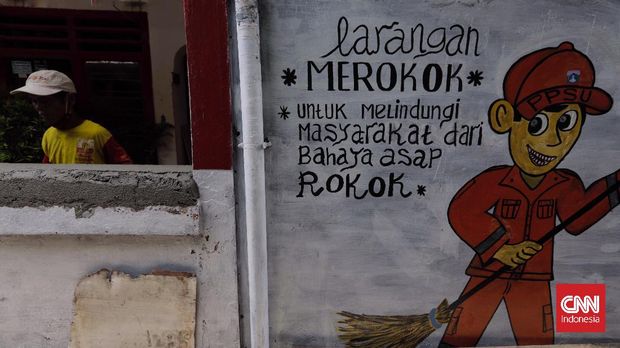 larangan
* MEROKOK *
* UNTUK MeliNDUNGi
MaSyaRaKat daRi
BaHaya aSaP
ROKOK *
PPSU
CNN
Indonesia